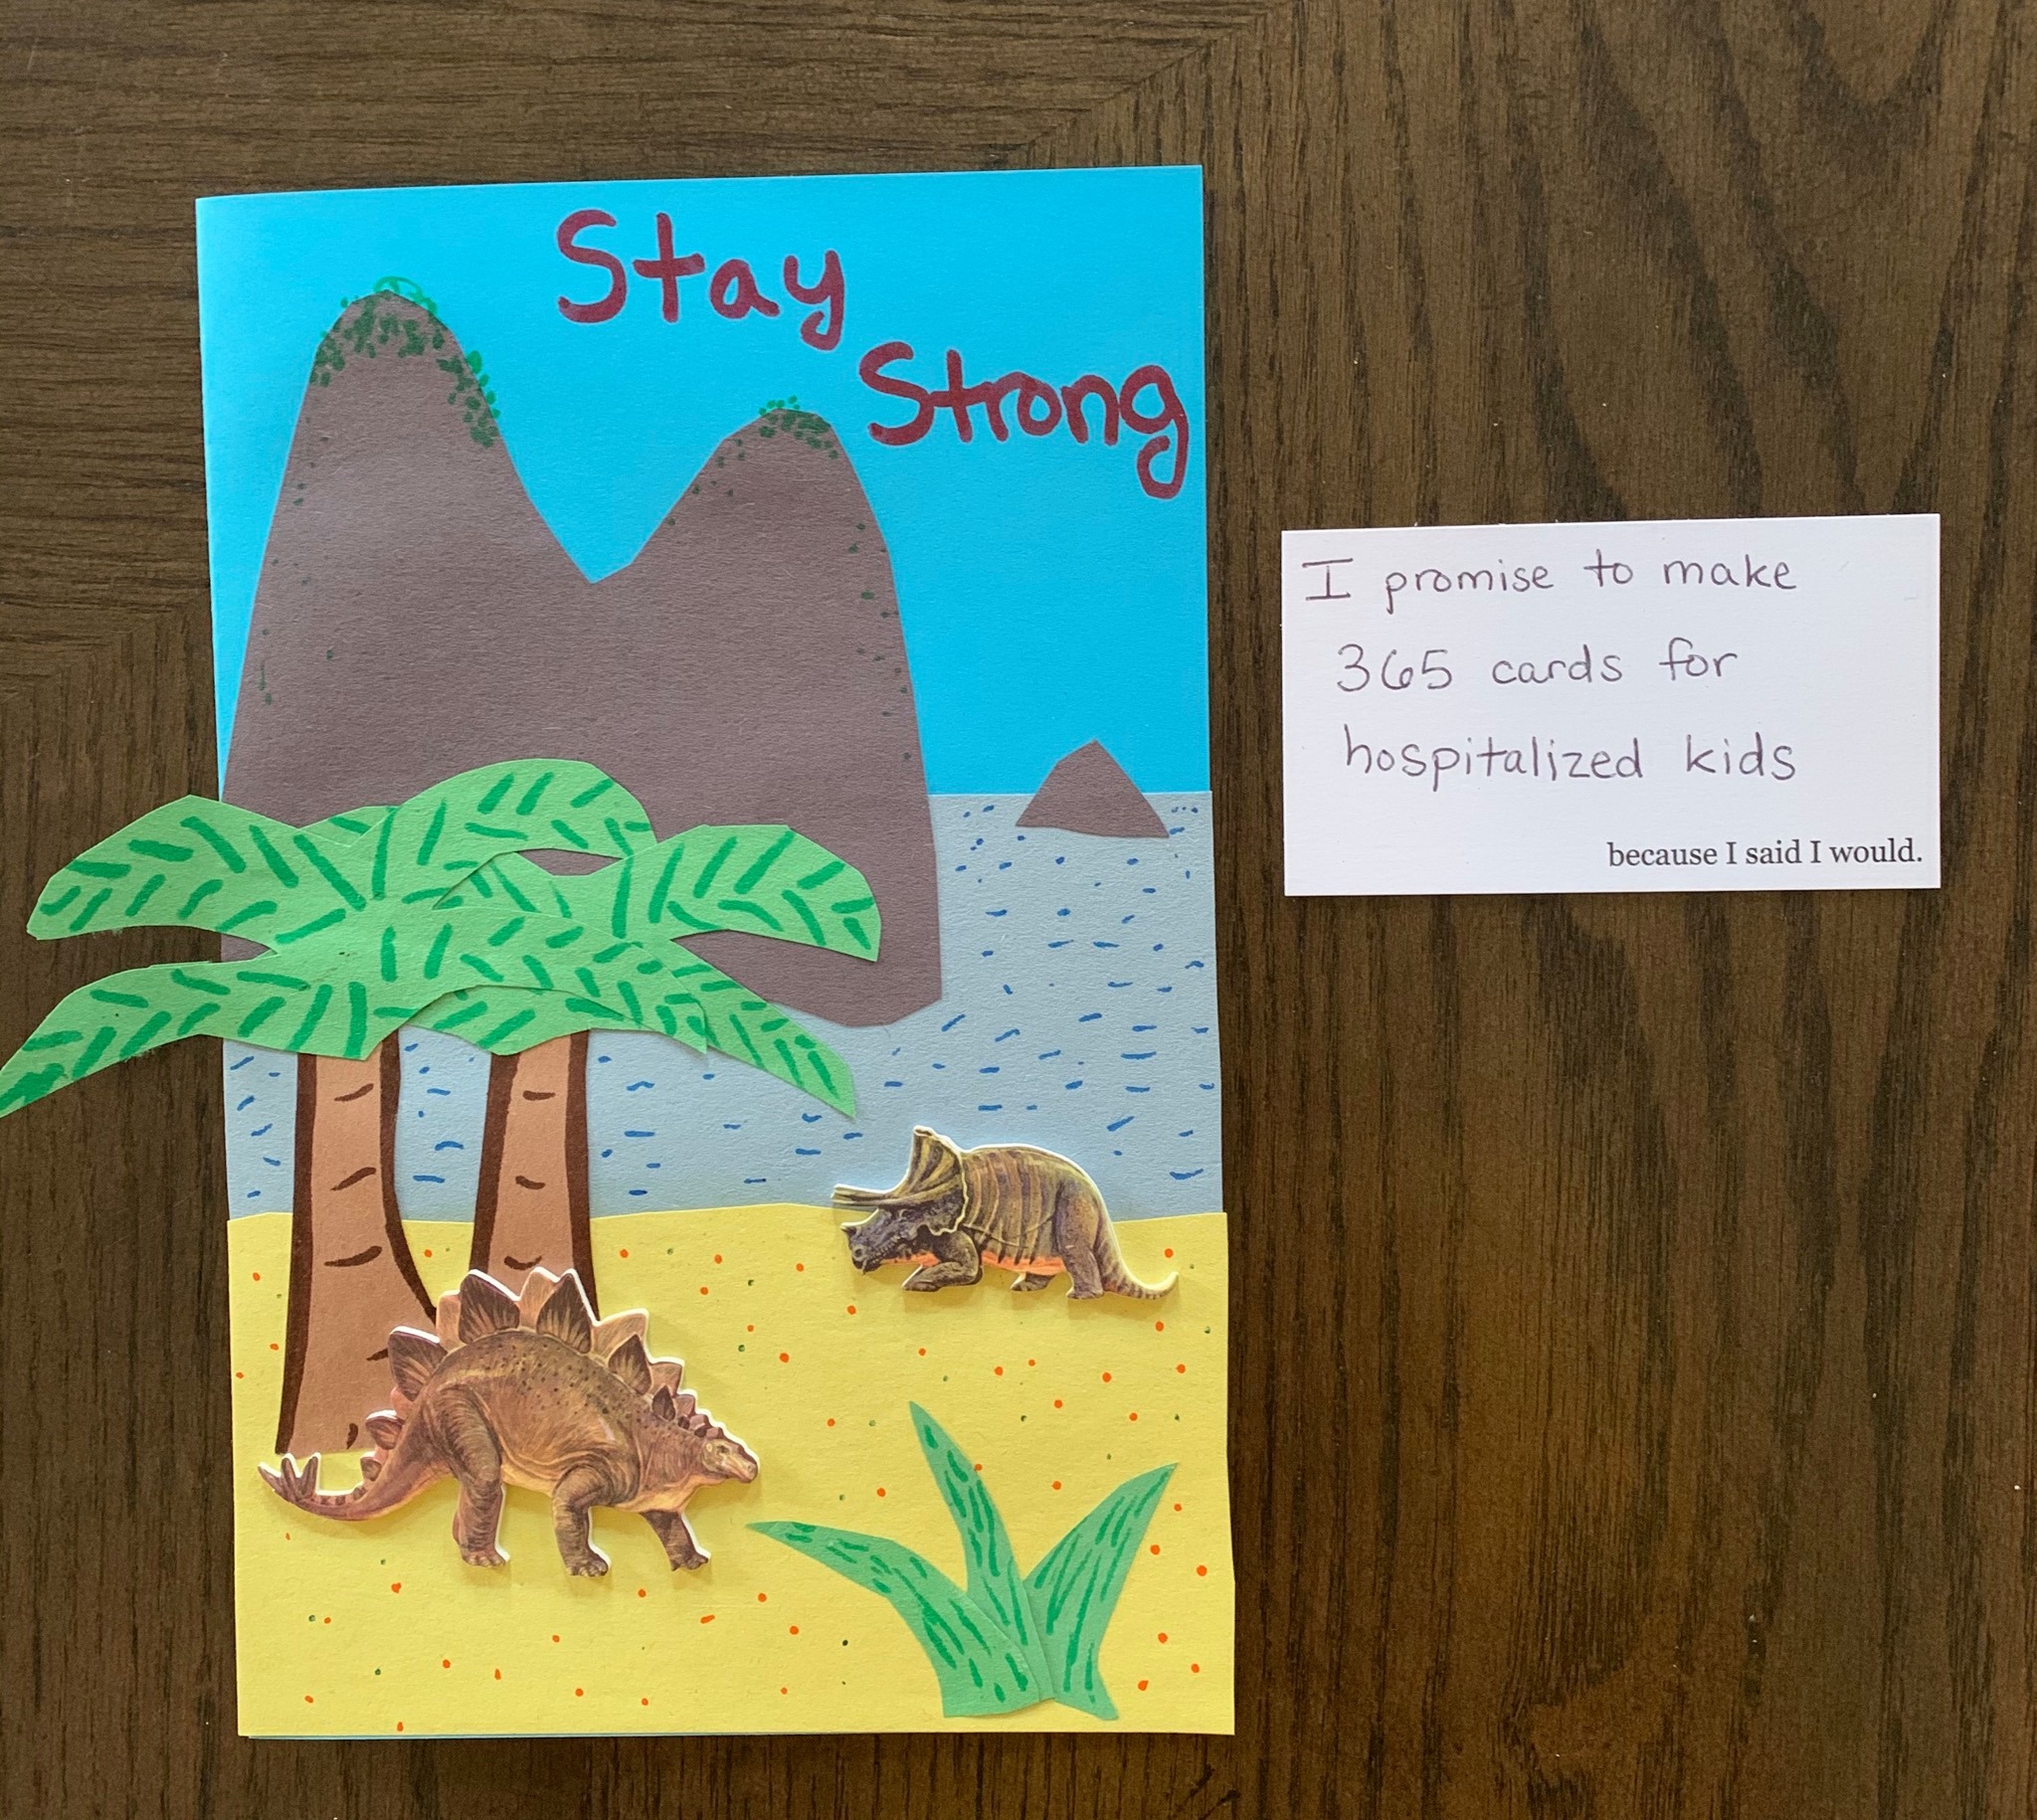 Stay
Strong
I promise to make
365 cards for
hospitalized kids
because I said I would.